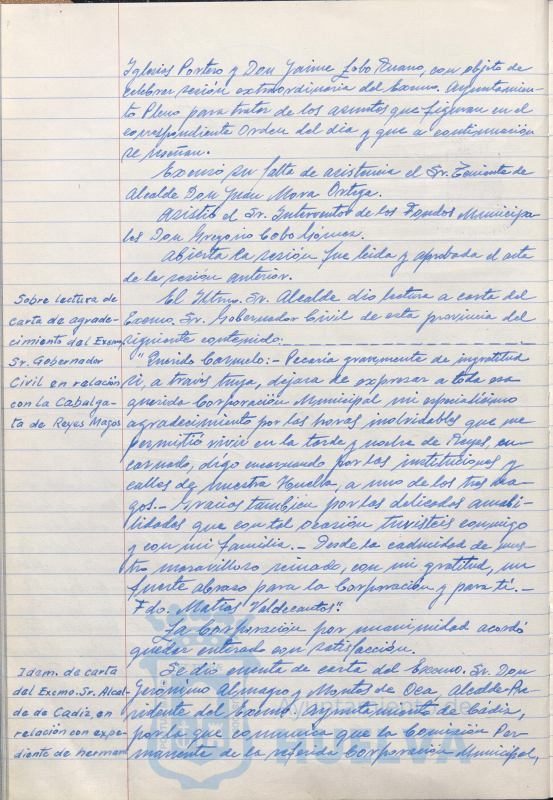 Iglesias Portero y Don Jaime Lobo Ruano, con objeto de
celebrar sesión extraordinaria del Excmo. Ayuntamien-
to Pleno para tratar de los asuntos que figuran en el
correspondiente Orden del día y que a continuación
se reseñan.
Excusó su falta de asistencia el Sr. Teniente de
Alcalde Don Juan Mora Ortega.
Asistió el Sr. Interventor de los Fondos Municipa-
les Don Gregorio Cobo Gómez.
Abierta la sesión fue leida y aprobada el acta
de la sesión anterior.
Sobre lectura de
carta de agrade-
cimiento del Excmo
Sr. Gobernador
Civil en relación
con la Cabalga-
ta de Reyes Magos
El Iltmo. Sr. Alcalde dio lectura a carta del
Excmo. Sr. Gobernador Civil de esta provincia del
siguiente contenido:
"Querido Carmelo:- Pecaría gravemente de ingratitud
si, a través tuya, dejara de expresar a toda esa
querida Corporación Municipal mi especialísimo
agradecimiento por las horas inolvidables que me
permitió vivir en la tarde y noche de Reyes, en-
carnado, digo encarnando por las instituciones y
calles de nuestra Huelva, a uno de los tres ma-
gos.- Gracias tambien por las delicadas amabi-
lidades que con tal ocasión tuvisteis conmigo
y con mi familia.- Desde la caducidad de nues-
tro maravilloso reinado, con mi gratitud, un
fuerte abrazo para la Corporación y para tí.-
Fdo. Matias Valdecantos".
La Corporación por unanimidad acordó
quedar enterada con satisfacción.
Idem. de carta
del Excmo. Sr. Alcal-
de de Cadiz, en
relación con expe-
diente de hermana
Se dio cuenta de carta del Excmo. Sr. Don
Jerónimo Almagro y Montes de Oca, Alcalde-Pre-
sidente del Excmo. Ayuntamiento de Cádiz,
por la que comunica que la Comisión Per-
manente de la referida Corporación Municipal,
Ayuntamiento de
HUELVA